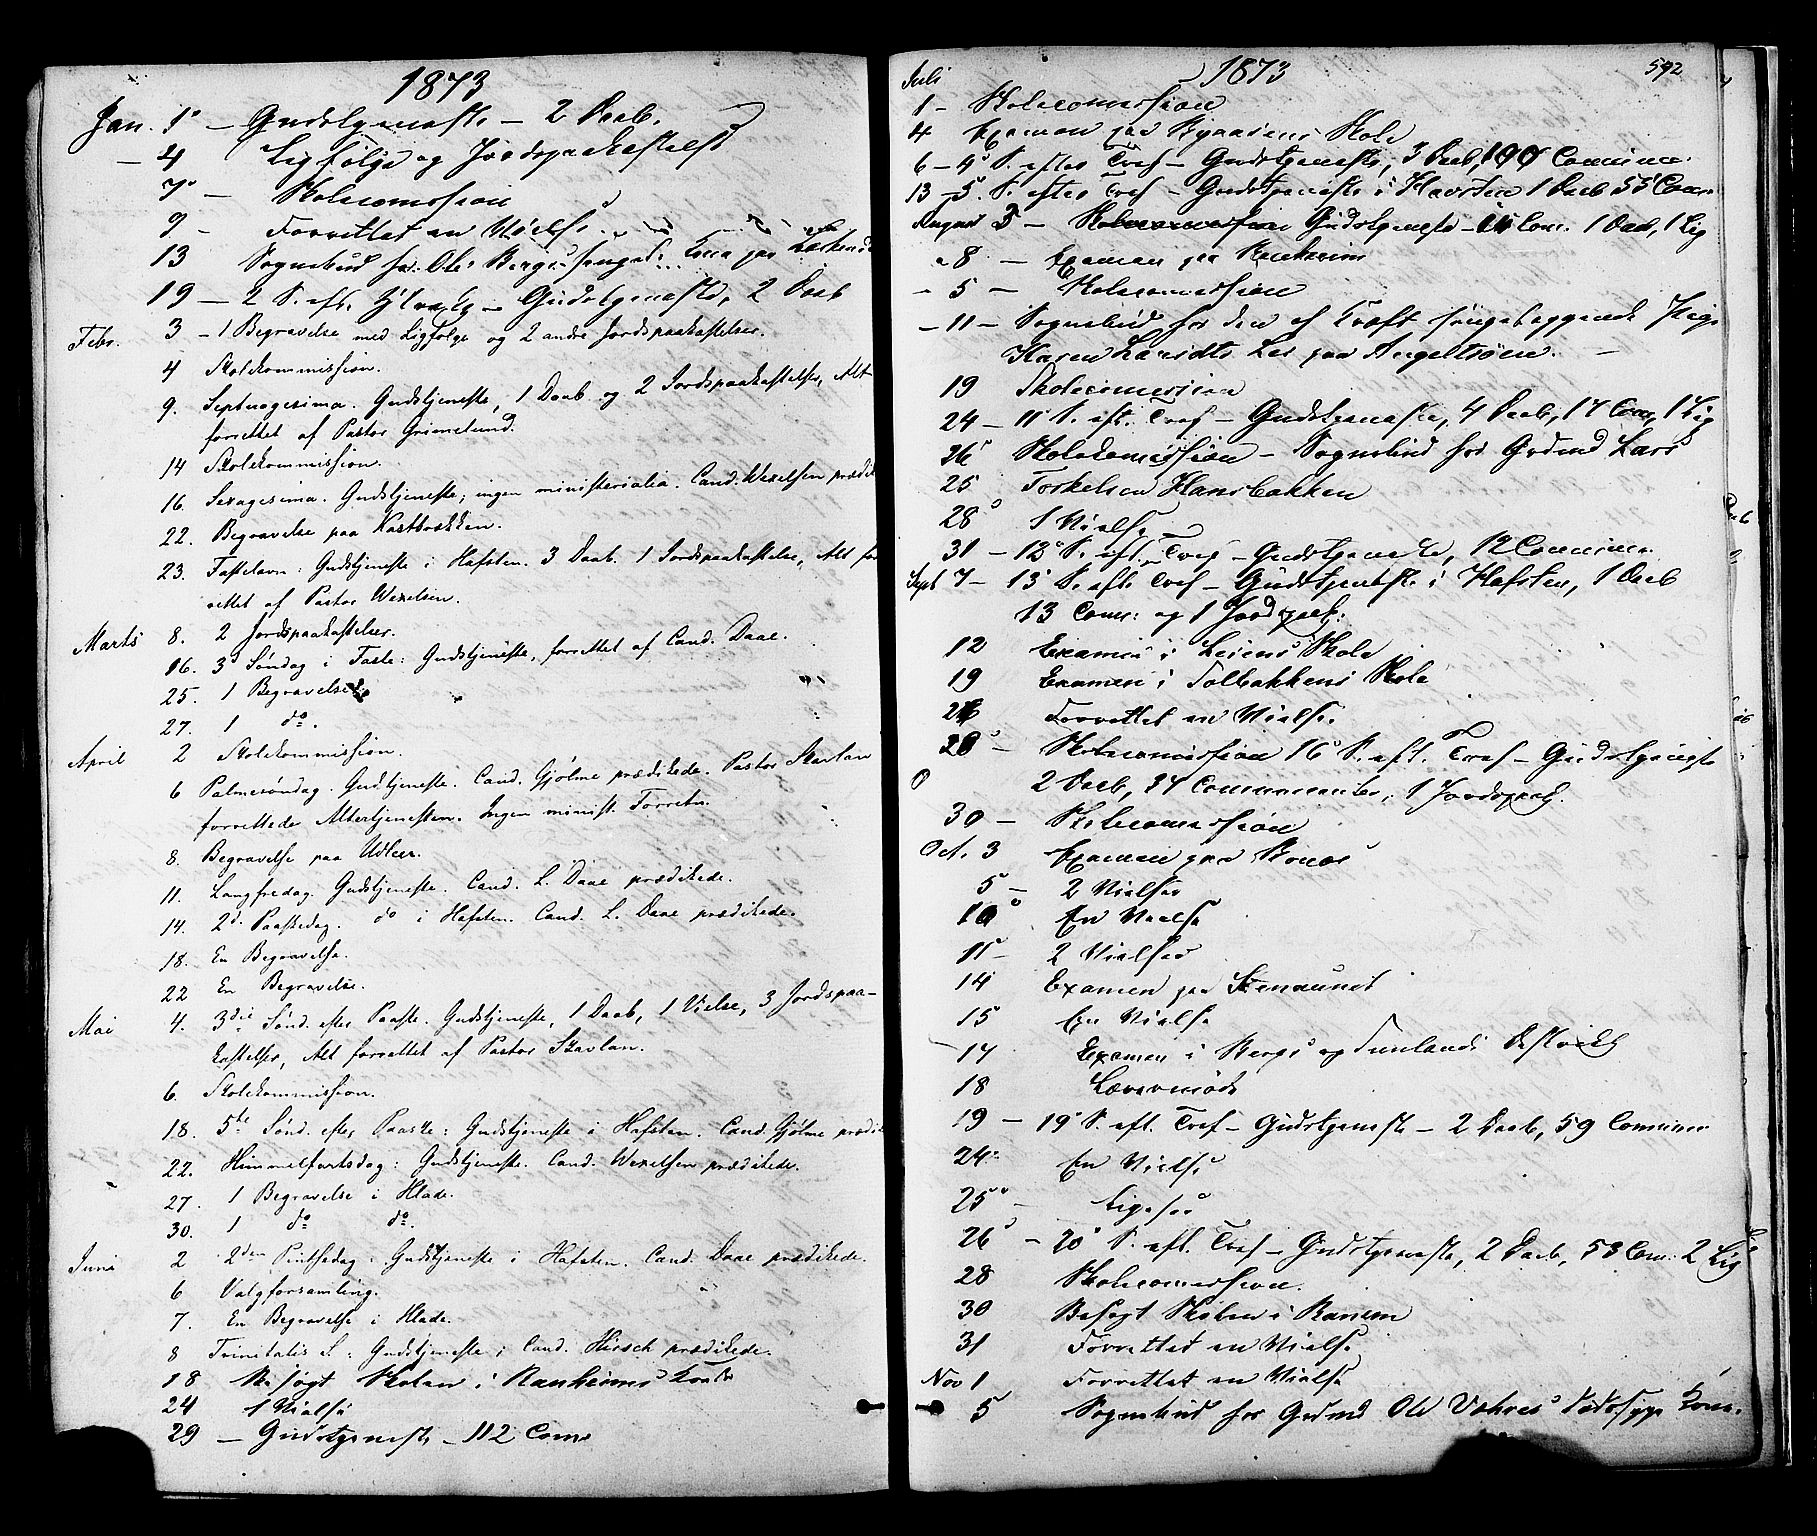 1873
Jan. 1 – Gudstjeneste – 2 Daab.
– 4 Ligfølge og Jordspaakastelse
7 – Skolecomission
9 – Forrettet en Vielse
13 Sognebud for Ole Bergs Kone paa
19 – 2 S. eft. – Gudstjeneste, 2 Daab
Febr. 3 – 1 Begravelse med Ligfølge og 2 andre Jordspaakastelser.
4 Skolekommission.
9. Septuagesima. Gudstjeneste, 1 Daab og 2 Jordspaakastelser, Alt
forrettet af Pastor Grimelund.
14 Skolekommission.
16. Sexagesima. Gudstjeneste; ingen ministerialia. Cand. Wexelsen prædik
22. Begravelse paa
23. Fastelavn: Gudstjeneste i Hafsten. 3 Daab. 1 Jordspaakastelse, Alt for
rettet af Pastor Wexelsen.
Marts 8. 2 Jordspaakastelser.
16. 3d Søndag i Faste: Gudstjeneste, forrettet af Cand. Daae.
25. 1 Begravelse
27. 1 do.
April 2 Skolekommission.
6 Palmesøndag. Gudstjeneste. Cand. Gjølme prædikede. Pastor Skavlan
forrettede Altertjenesten. Ingen minist. Forretn.
8. Begravelse paa Udleer.
11. Langfredag. Gudstjeneste. Cand. L. Daae prædikede.
14. 2d. Paaskedag. do i Hafsten. Cand. L. Daae prædikede.
18. En Begravelse.
22 En Begravelse.
Mai 4. 3die Sønd. efter Paaske. Gudstjeneste, 1 Daab, 1 Vielse, 3 Jordspaa-
kastelser, Alt forrettet af Pastor Skavlan.
6. Skolekommission.
18. 5te Sønd. efter Paaske: Gudstjeneste i Hafsten. Cand. Gjølme prædik
22. Himmelfartsdag: Gudstjeneste. Cand. Wexelsen prædikede.
27. 1 Begravelse i Hlade.
30. 1 do do.
Juni 2 2den Pintsedag: Gudstjeneste i Hafsten. Cand. Daae prædikede.
6 Valgforsamling.
7. En Begravelse i Hlade.
8 Trinitatis S.: Gudstjeneste; Cand. Hirsch prædikede.
18 Besøgt Skolen i Ranheims
24 1 Vielse
29 – Gudstjeneste – 112 Com
592
1873
Juli
1 – Skolecomission
4 Examen paa Byaasens Skole
6 – 4 S. efter Tref – Gudstjeneste, 3 Daab, Commun.
13 – 5. S. efter Tref – Gudstjeneste i Havsten 1 Daab 55 Com
August 3 – Skolecomission Gudstjeneste – Com. 1 Daab, 1 Lig
8 – Examen paa Ranheim
– 5 – Skolecomission
– 11 – Sognebud for den af sengeliggende Pige
Karen
19 Skolecomission
24 – 11 S. eft. Tref – Gudstjeneste, 4 Daab, 17 Com, 1 Lig
26 Skolekomission – Sognebud for Grdmd Lars
25 Torkelsen Hansbakken
28 1 Vielse
31 – 12 S. eft. Tref – Gudstjeneste, 12 Commun.
Sept 7 – 13 S. eft. Tref – Gudstjeneste i Hafsten, 1 Daab
13 Com: og 1 Jordspaak:
12 Examen i Leiens Skole
19 Examen i Solbakkens Skole
Forrettet en Vielse.
28 – Skolecomission 16 S. eft. Tref – Gudstjeneste
2 Daab, 34 Communicanter, 1 Jordspaak.
30 – Skolecomission
Oct. 3 Examen paa
5 – 2 Vielser
10 En Vielse
11 – 2 Vielser
14 Examen paa
15 En Vielse
17 Examen i Bergs og
18 Lærermøde
19 – 19 S. eft. Tref – Gudstjeneste – 2 Daab, 59 Commun
24 En Vielse
25 – Ligesaa
26 – 20 S. eft. Tref – Gudstjeneste, 2 Daab, 53 Com. 2 Lig
28 Skolecomission.
30 Besøgt Skolen i Ranem
31 Forrettet en Vielse
Nov 1 Forrettet en Vielse
5 Sognebud for Grdmd Ole dødssyge Kone.